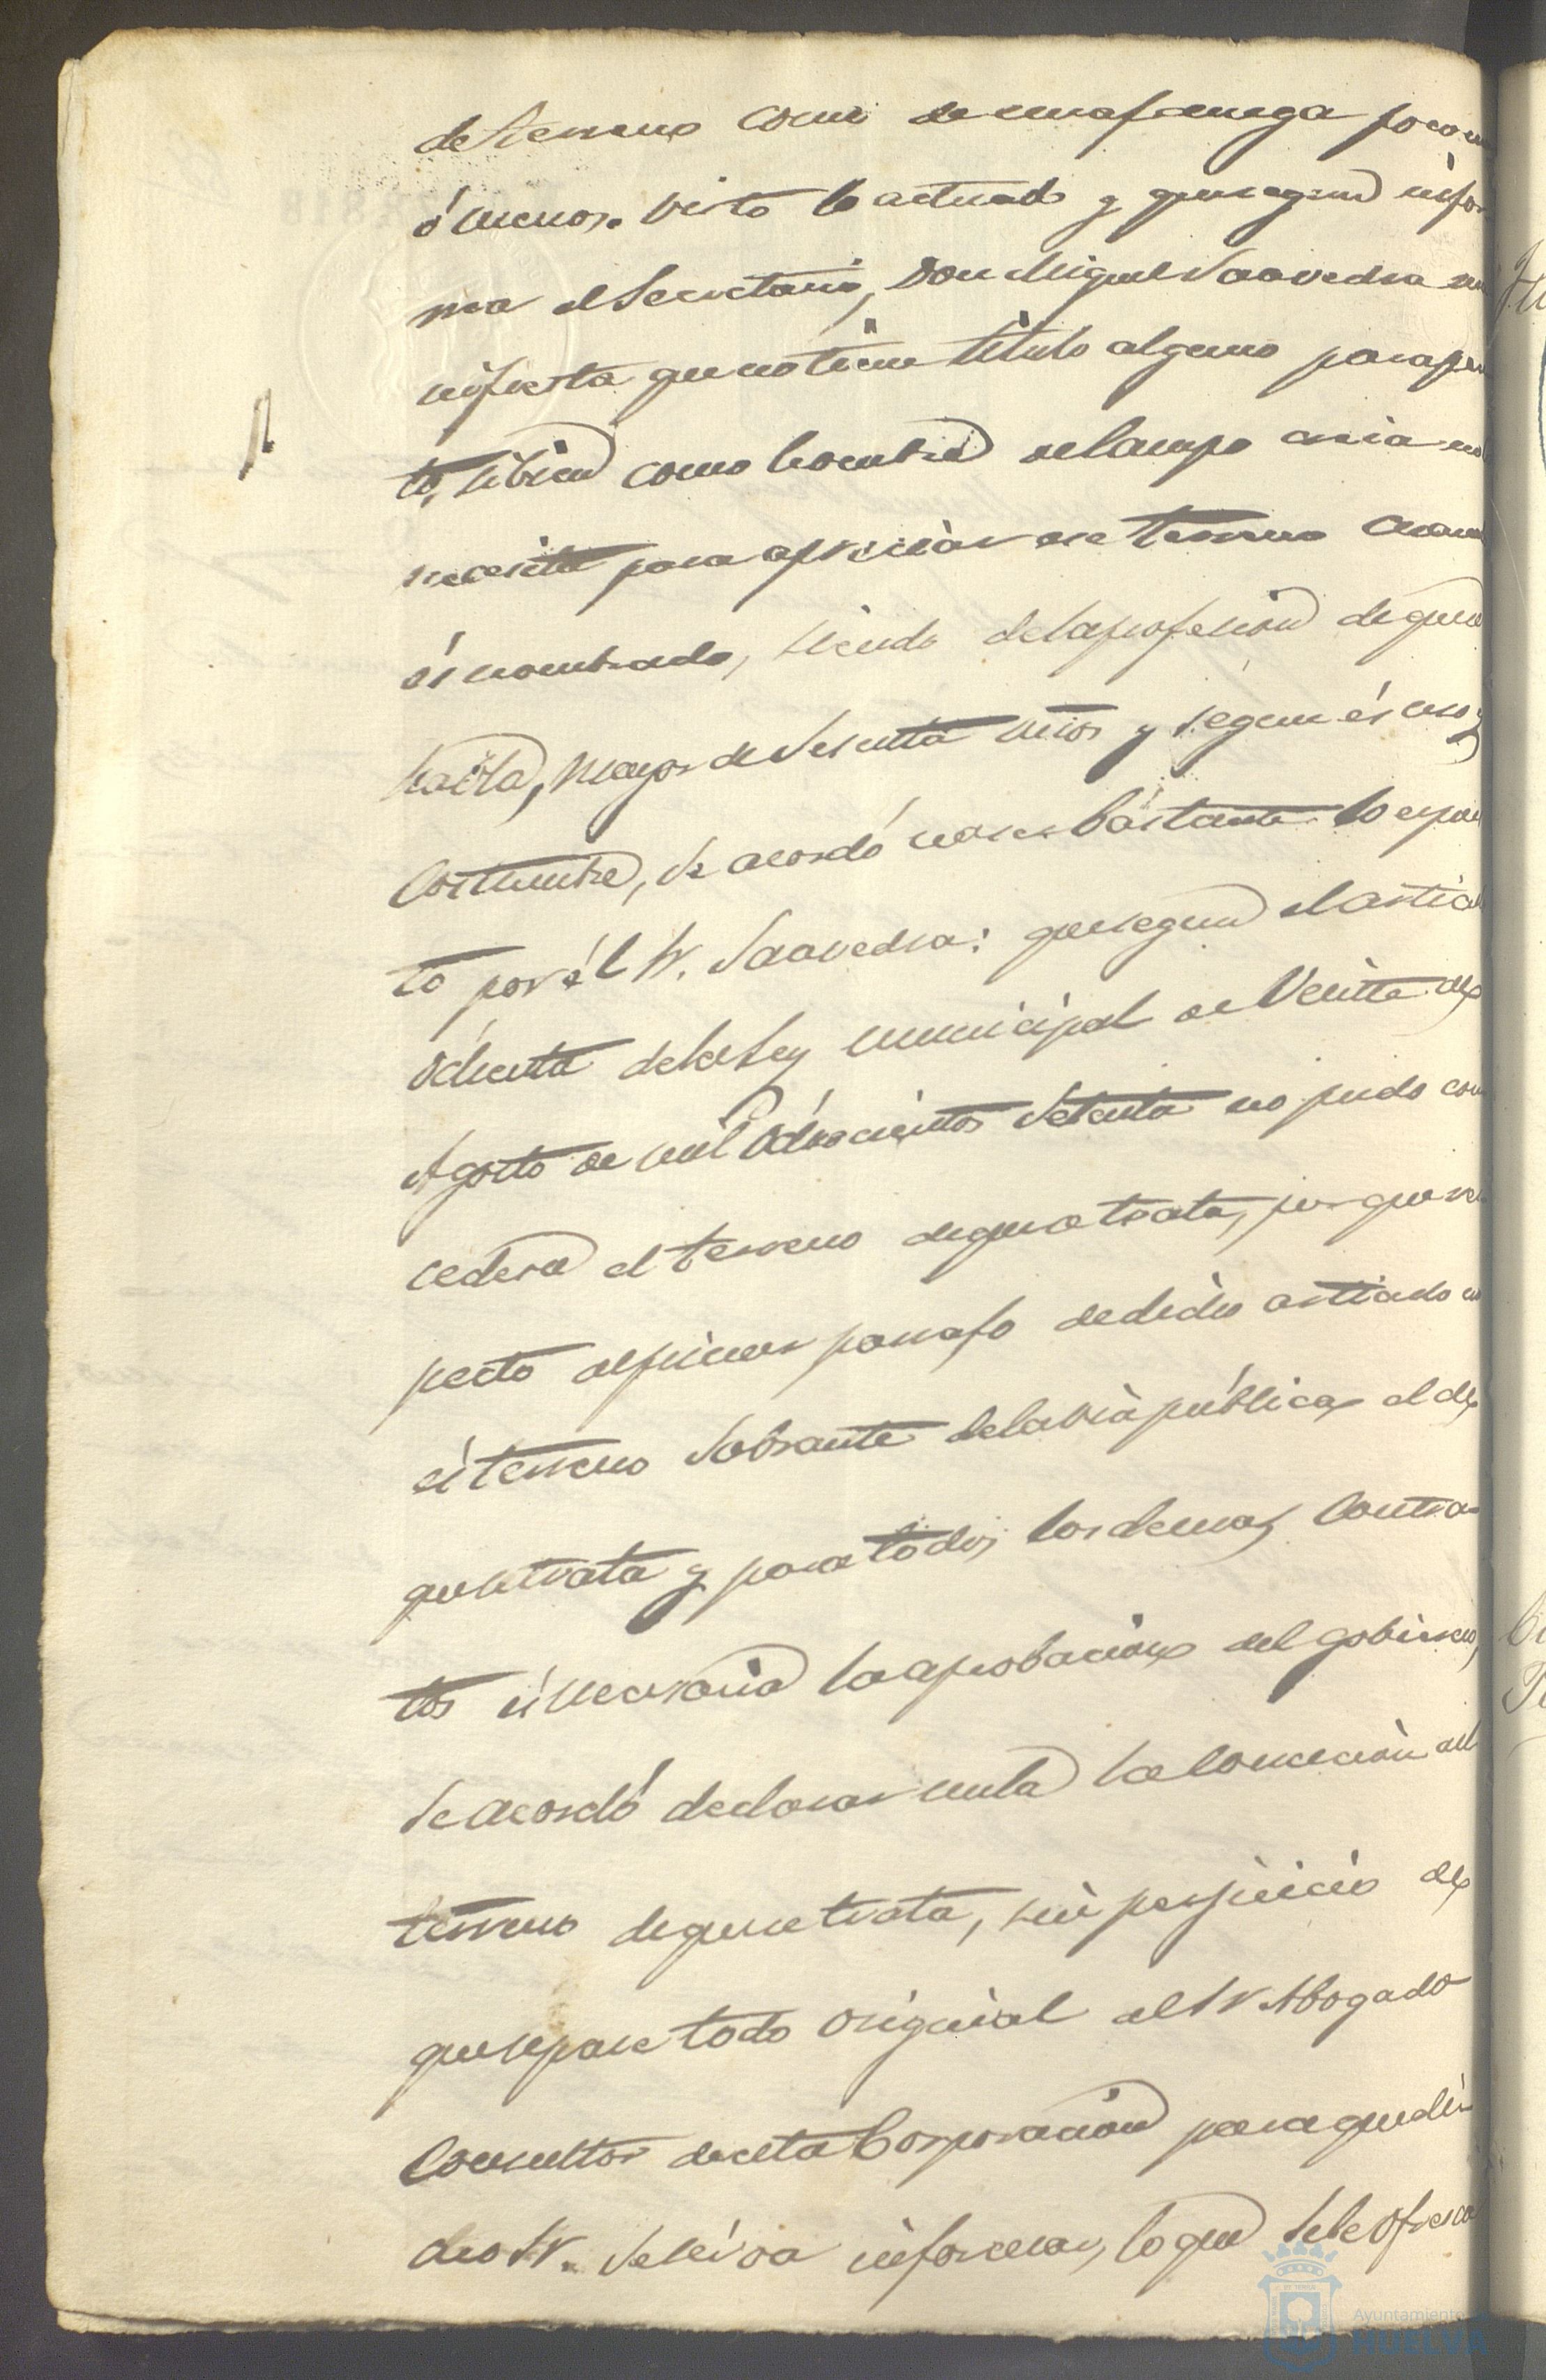 de terreno como de una fanega poco m
ó menos. Visto lo actuado y que segun infor
ma el Secretario, Don Miguel Saavedra ma
nifiesta que no tiene titulo alguno para peri
to, si bien como hombre del campo creia no
necesita para apreciar ese terreno
és nombrado, siendo de la profesion de que se
habla, mayor de sesenta años y según és uso y
costumbre, se acordó no ser bastante lo espues
to por él Sr. Saavedra: que segun el articulo
ochenta de la Ley municipal de Veinte de
Agosto de mil ochocientos Setenta no pudo con
cederse el terreno de que se trata, porque res
pecto al primer parrafo de dicho articulo no
és terreno sobrante de la via pública el de
que se trata y para todos los demas contra
tos és necesaria la aprobacion del gobierno,
se acordó declarar nula la concecion del
terreno de que se trata, sin perjuicio de
que se pase todo original al Sr Abogado
Consultor de esta Corporacion para que di
cho Sr. se sirva informar, lo que se le ofresca
Ayuntamiento
HUELVA